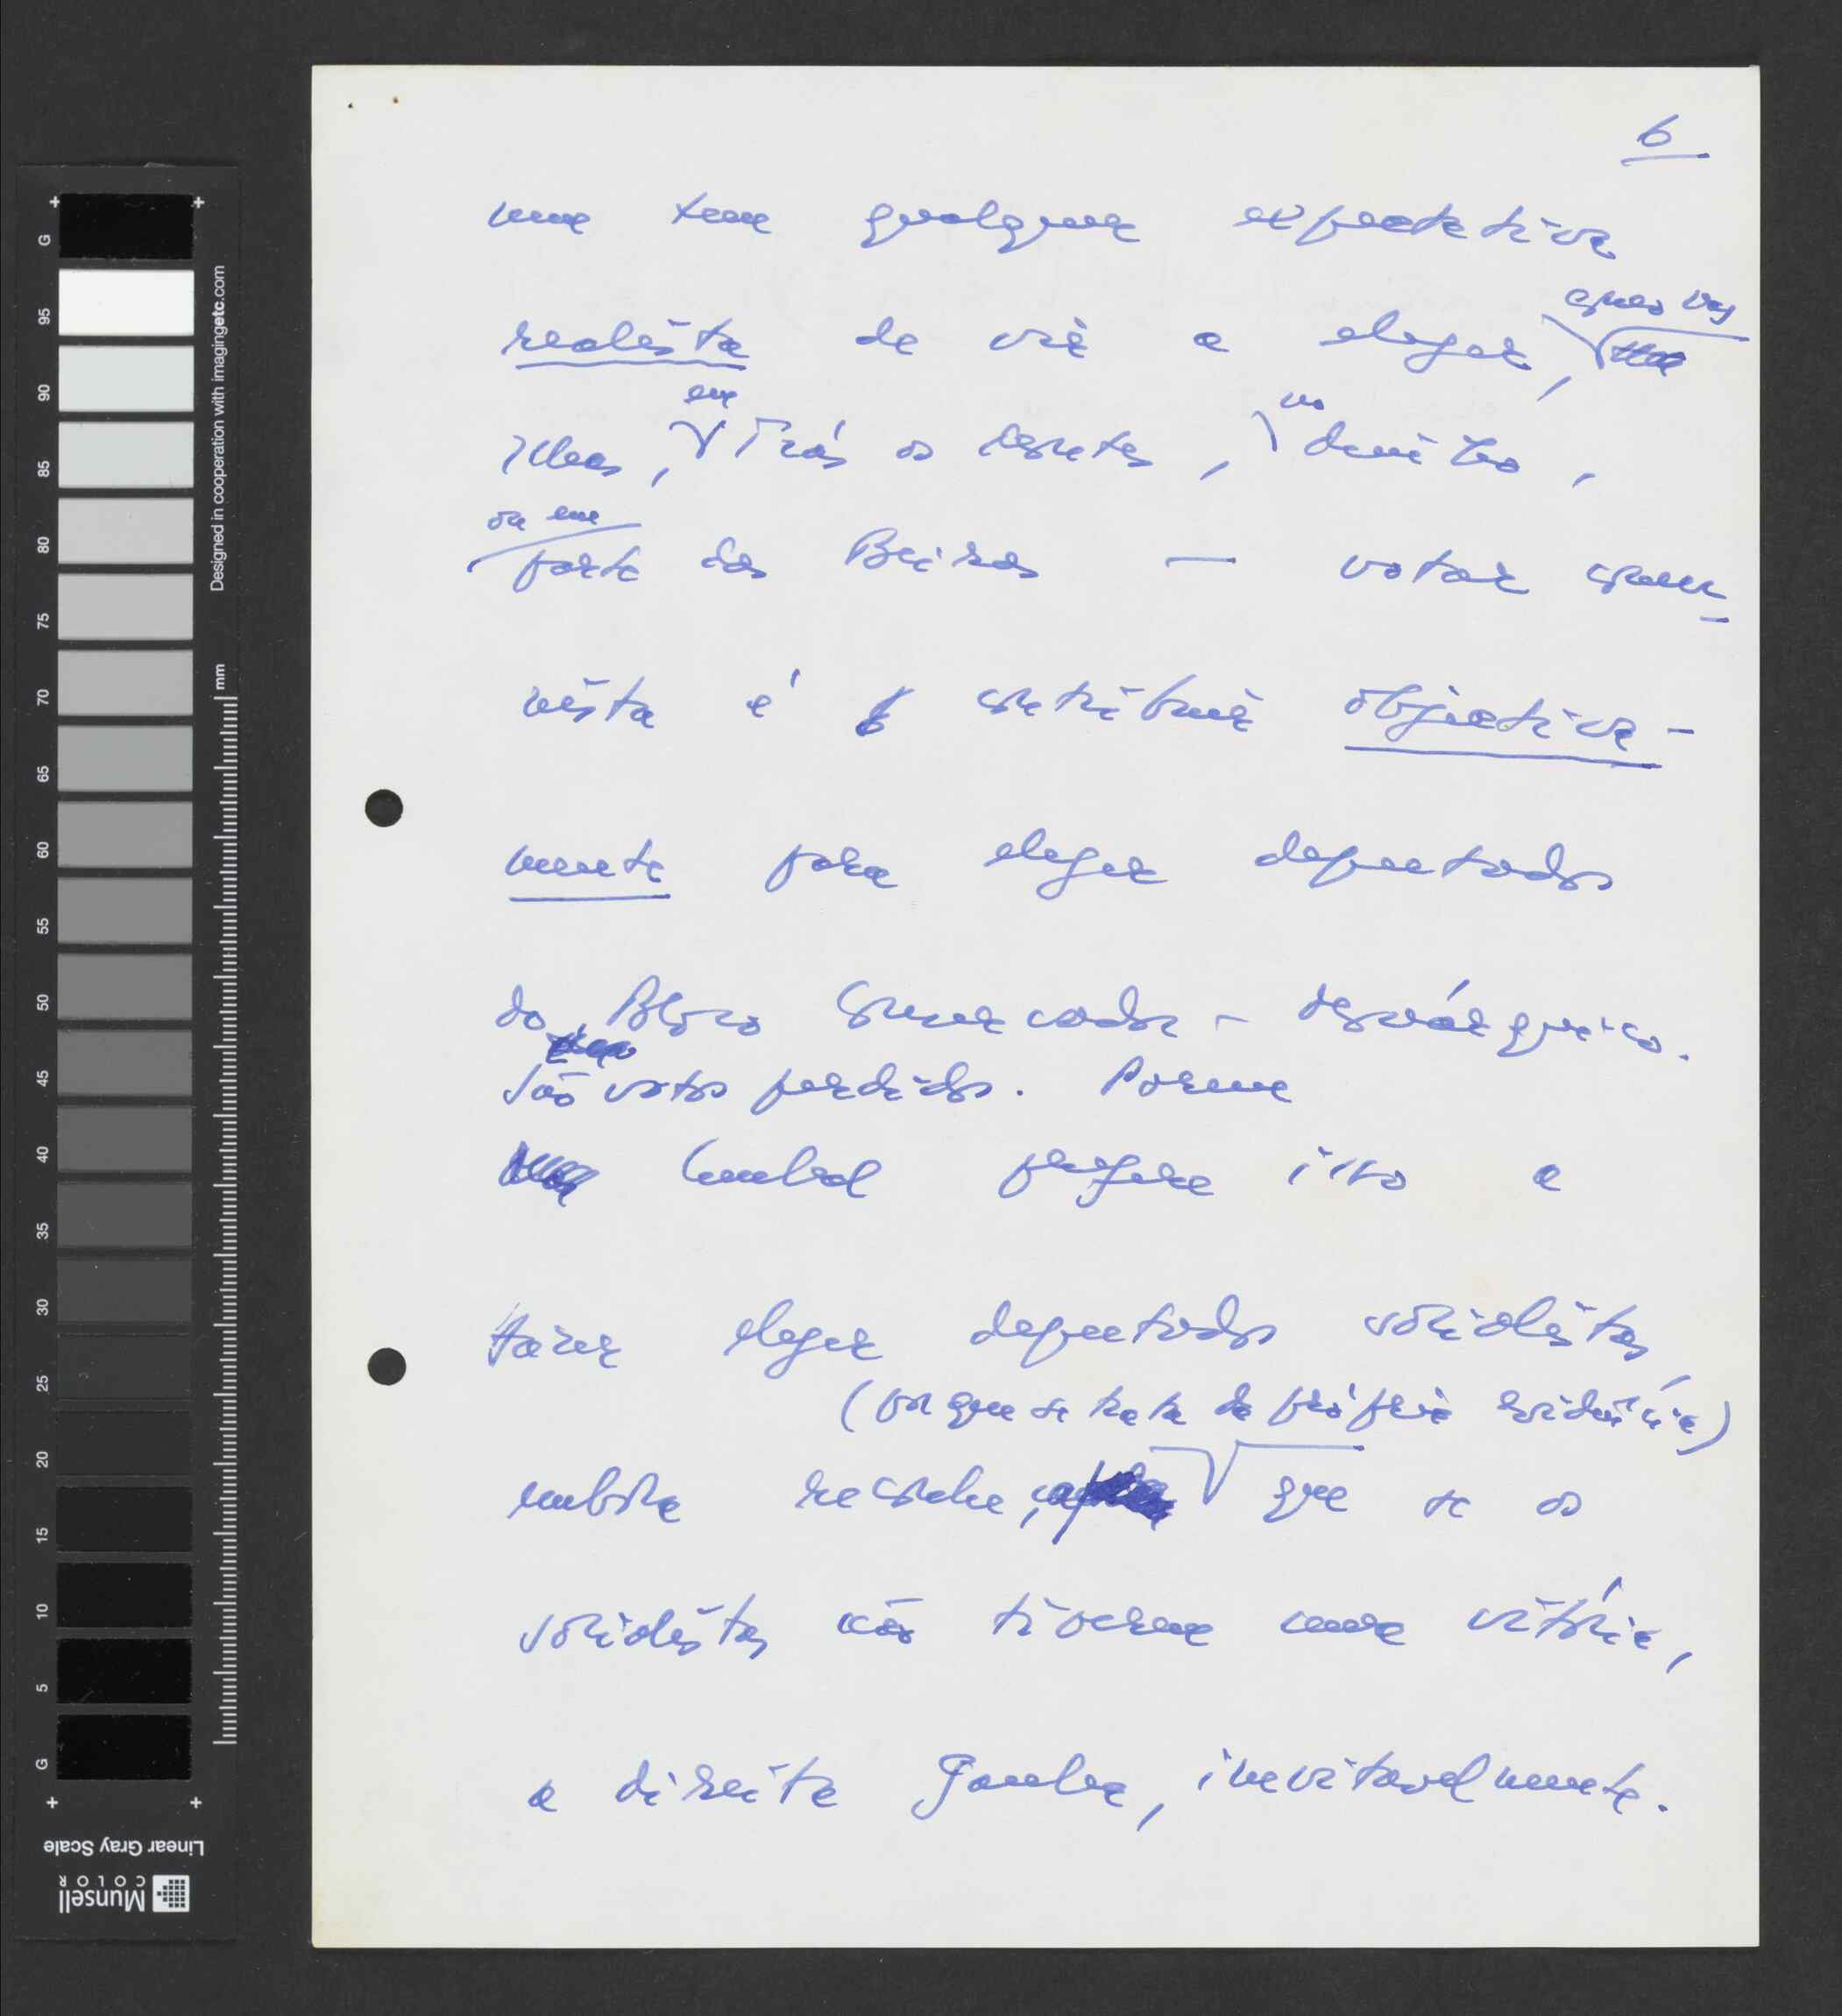 6
nem tem qualquer expectativa
realista de vir a eleger, como nas
Ilhas, em Trás os Montes, no Minho,
ou em parte das Beiras — votar comu-
nista é contribuir objectiva-
mente para eleger deputados
do Bloco Conservador-Monárquico.
São votos perdidos. Porém
Cunhal prefere isso a
fazer eleger deputados socialistas,
(por que se trata da própria evidência)
embora reconheça, que se os
socialistas não tiverem uma vitória,
a direita ganha, inevitavelmente.
G
95
90
85
80
75
70
65
60
55
50
45
40
35
30
25
20
15
10
5
G
Designed in cooperation with imagingetc.com
mm
Linear Gray Scale
Munsell
COLOR